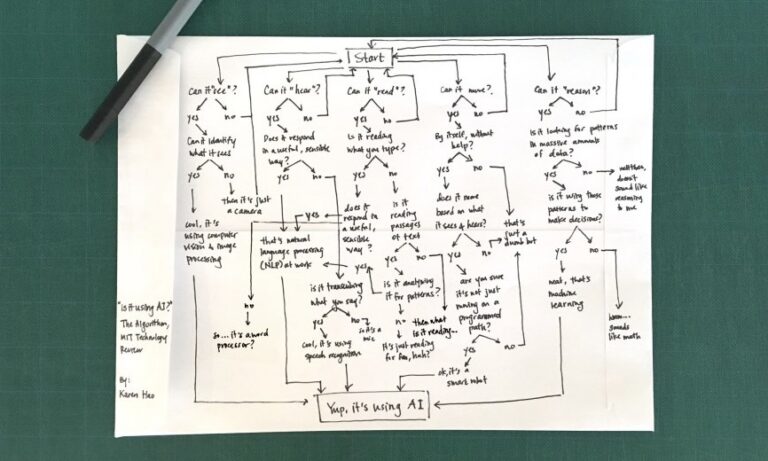 Start
Can it "see"?
yes
no
Can it identify
what it sees
yes
no
then it's just
a camera
cool, it's
using computer
vision & image
processing
Can it "hear"?
yes
no
Does it respond
in a useful, sensible
way?
yes
no
that's natural
language processing
(NLP) at work
is it transcribing
what you say?
yes
no
so it's a
mic
cool, it's using
speech recognition
Can it "read"?
yes
no
Is it reading
what you type?
yes
no
does it
respond in
a useful,
sensible
way?
yes
no
so... it's a word
processor?
is it
reading
passages
of text
yes
no
then what
is it reading...
is it analyzing
it for patterns?
no
It's just reading
for fun, huh?
Can it move?
yes
no
By itself, without
help?
yes
no
does it move
based on what
it sees & hears?
yes
no
that's
just a
dumb bot
are you sure
it's not just
moving on a
programmed
path?
yes
no
ok, it's a
smart robot
Can it "reason"?
yes
no
Is it looking for patterns
in massive amounts
of data?
yes
no
well then,
doesn't
sound like
reasoning
to me
is it using those
patterns to
make decisions?
yes
no
neat, that's
machine
learning
hmm...
sounds
like math
Yup, it's using AI
"Is it using AI?"
The Algorithm,
MIT Technology
Review
By:
Karen Hao